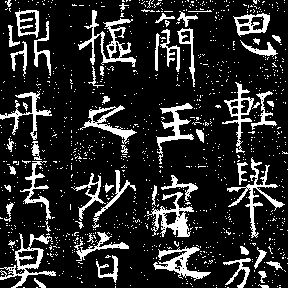 思輕舉於
簡玉字之
摳之妙旨
鼎丹法莫